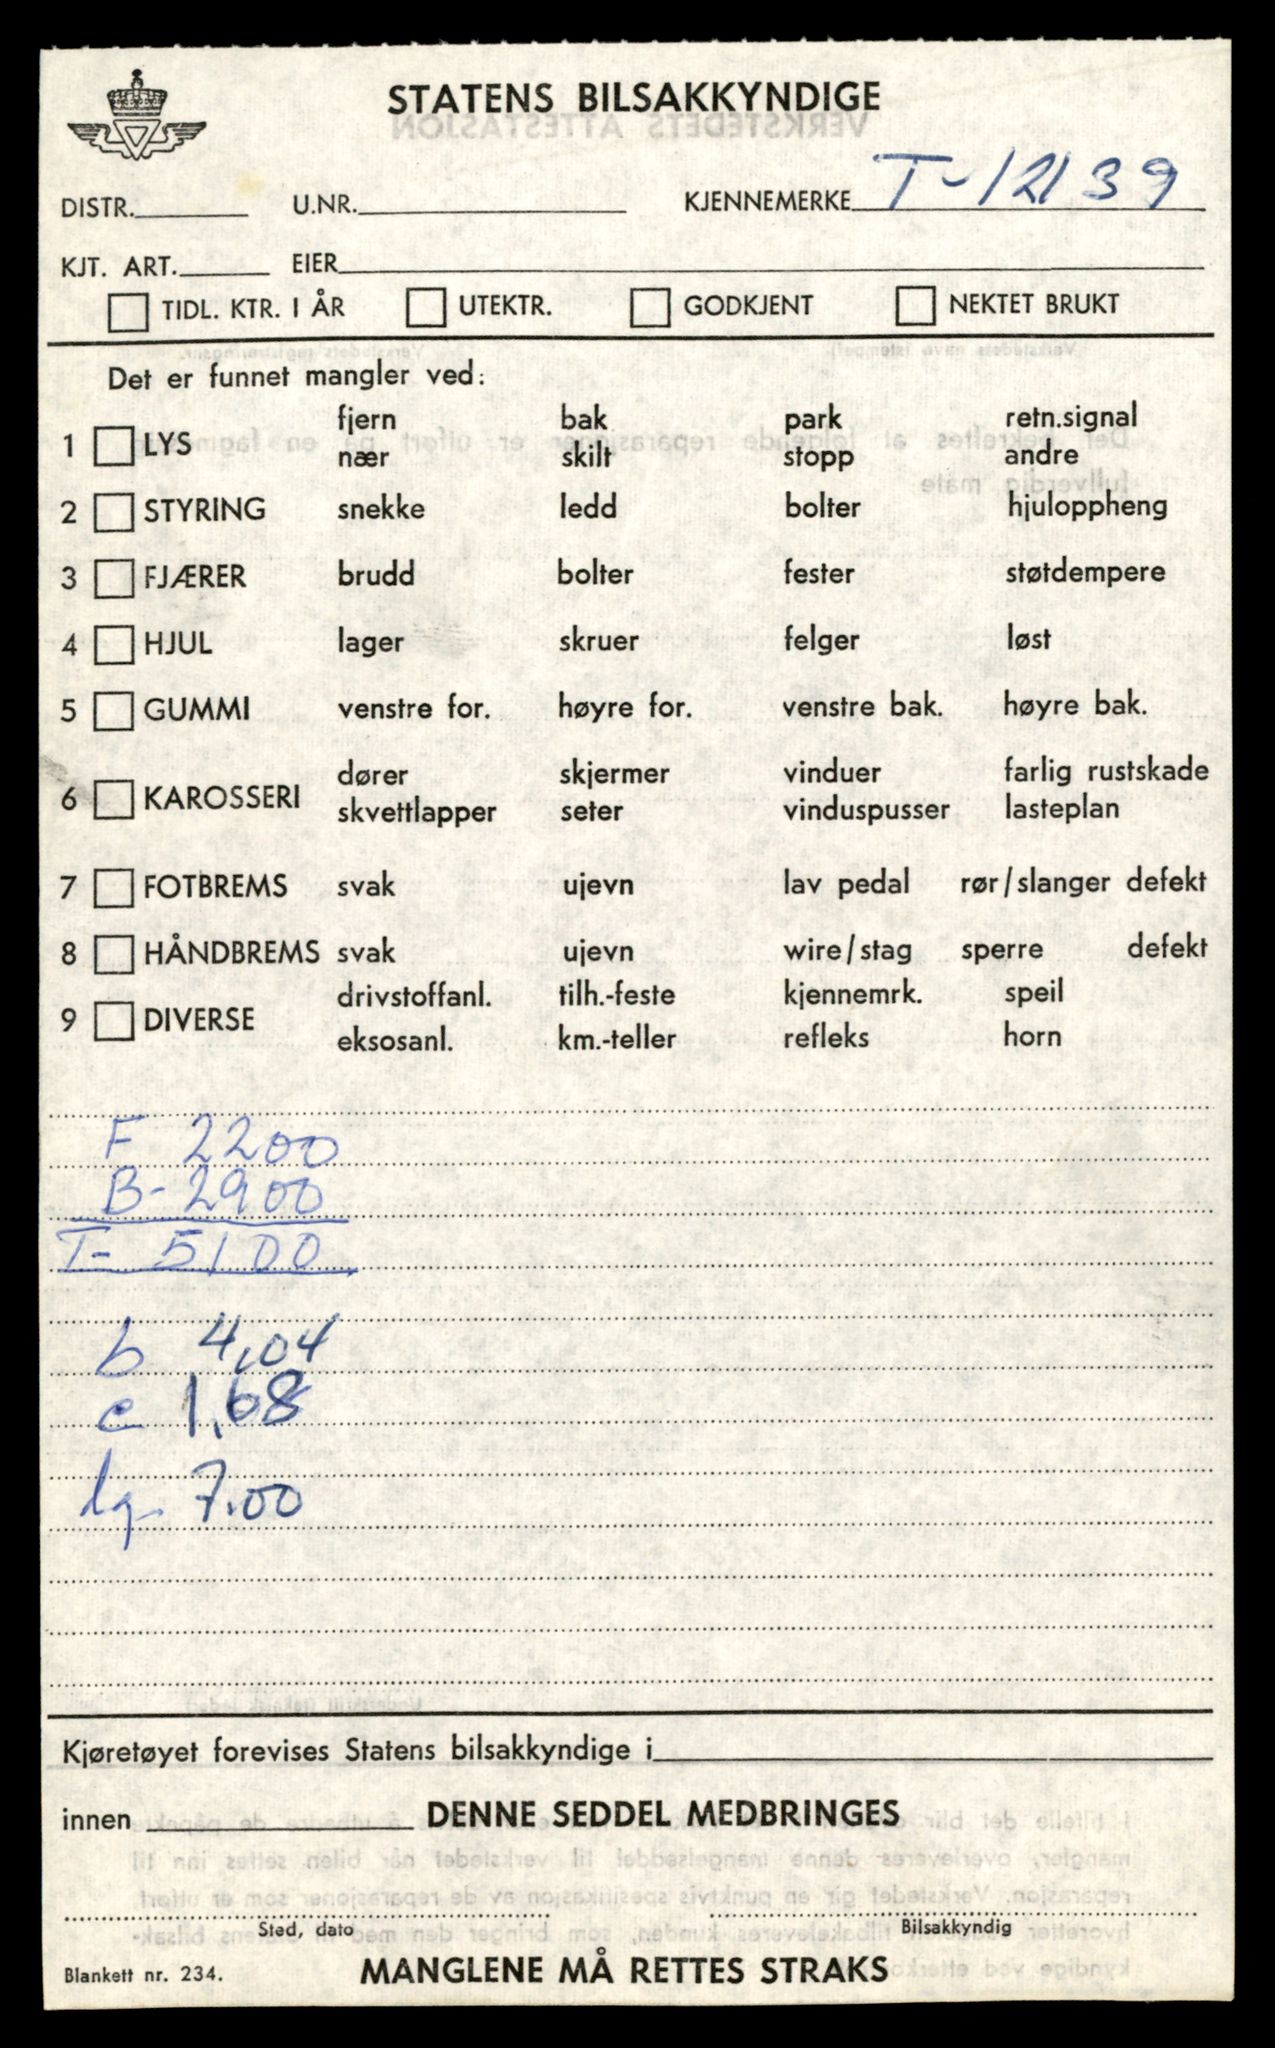 STATENS BILSAKKYNDIGE
VERKSTEDETS ATTESTASJON
DISTR. U.NR. KJENNEMERKE T-12139
KJT. ART. EIER
TIDL. KTR. I ÅR UTEKTR. GODKJENT NEKTET BRUKT
Det er funnet mangler ved:
fjern bak park retn.signal
1 LYS
nær skilt stopp andre
2 STYRING snekke ledd bolter hjuloppheng
3 FJÆRER brudd bolter fester støtdempere
4 HJUL lager skruer felger løst
5 GUMMI venstre for. høyre for. venstre bak. høyre bak.
dører skjermer vinduer farlig rustskade
6 KAROSSERI
skvettlapper seter vinduspusser lasteplan
7 FOTBREMS svak ujevn lav pedal rør/slanger defekt
8 HÅNDBREMS svak ujevn wire/stag sperre defekt
drivstoffanl. tilh.-feste kjennemrk. speil
9 DIVERSE
eksosanl. km.-teller refleks horn
F 2200
B- 2900
T- 5100
b 4,04
e 1,68
lg. 7.00
Kjøretøyet forevises Statens bilsakkyndige i
innen DENNE SEDDEL MEDBRINGES
Sted, dato Bilsakkyndig
Blankett nr. 234. MANGLENE MÅ RETTES STRAKS